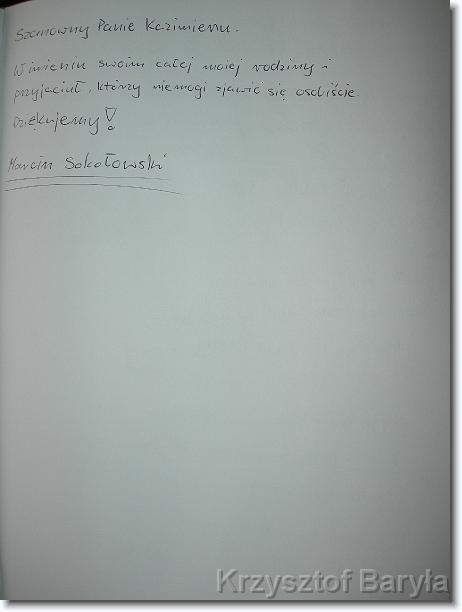 Szanowny Panie Kazimierzu.
W imieniu swoim całej mojej rodziny i
przyjaciuł, którzy niemogi zjawić się osobiście.
Dziękujemy!
Marcin Sokołowski
Krzysztof Baryła